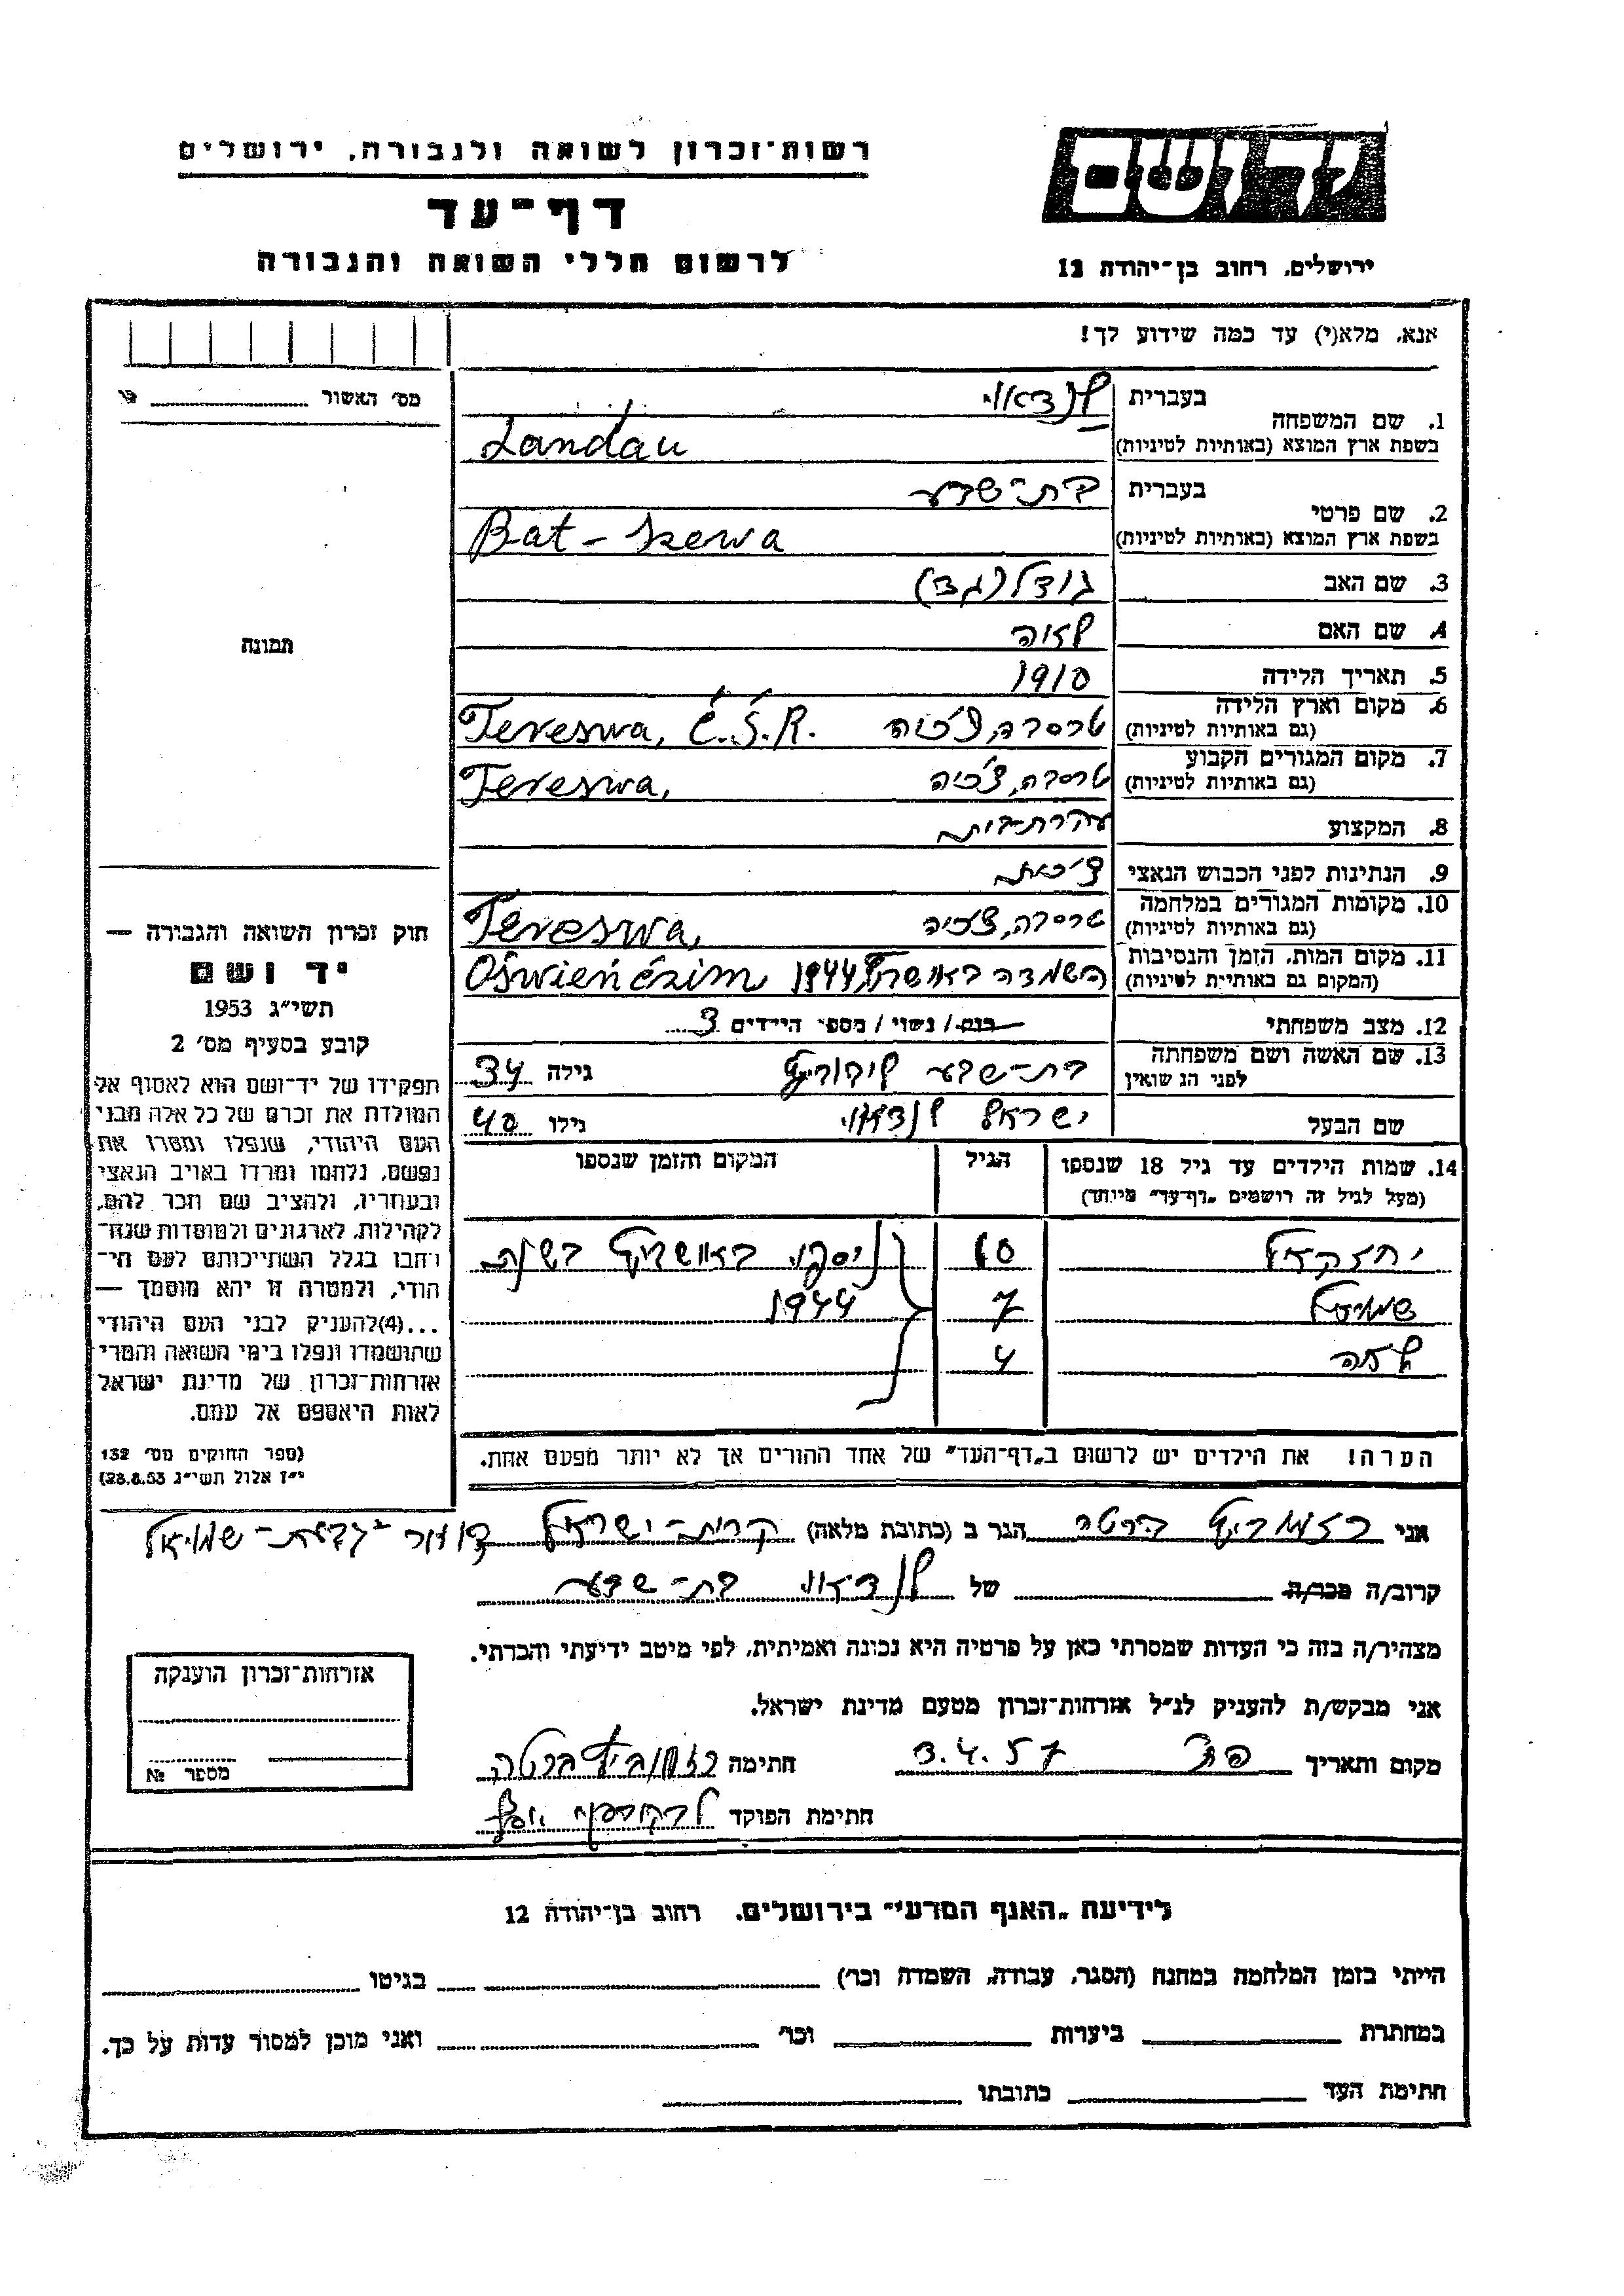 רשות־זכרון לשואה ולגבורה, ירושלים
דף־עד
לרשום חללי השואה והגבורה
יד ושם
ירושלים, רחוב בן־יהודה 12
אנא, מלא(י) עד כמה שידוע לך!
מס׳ האשור
תמונה
1. שם המשפחה
בעברית לנדאו
בשפת ארץ המוצא (באותיות לטיניות) Landau
2. שם פרטי
בעברית בת-שבע
בשפת ארץ המוצא (באותיות לטיניות) Bat-Szewa
3. שם האב גודל (גד)
4. שם האם לאה
5. תאריך הלידה 1910
6. מקום וארץ הלידה טרסוה, צ׳כיה Tereswa, Č.S.R.
(גם באותיות לטיניות)
7. מקום המגורים הקבוע טרסוה, צ׳כיה Tereswa,
(גם באותיות לטיניות)
8. המקצוע עקרת-בית
9. הנתינות לפני הכבוש הנאצי צ׳כית
10. מקומות המגורים במלחמה טרסוה, צ׳כיה Tereswa,
(גם באותיות לטיניות)
11. מקום המות, הזמן והנסיבות השמדה באושויץ 1944 Oświeńćzim
(המקום גם באותיות לטיניות)
12. מצב משפחתי רווק / נשוי / מספר הילדים 3
13. שם האשה ושם משפחתה לפני הנשואין בת-שבע גילה 34
שם הבעל ישראל לנדאו גילו 40
14. שמות הילדים עד גיל 18 שנספו הגיל המקום והזמן שנספו
(מעל לגיל זה רושמים „דף־עד״ מיוחד)
יחזקאל 10 ניספו באושויץ בשנת
שמואל 7 1944
לאה 4
הערה! את הילדים יש לרשום ב„דף־העד״ של אחד ההורים אך לא יותר מפעם אחת.
חוק זכרון השואה והגבורה —
יד ושם
תשי״ג 1953
קובע בסעיף מס׳ 2
תפקידו של יד־ושם הוא לאסוף אל
המולדת את זכרם של כל אלה מבני
העם היהודי, שנפלו ומסרו את
נפשם, נלחמו ומרדו באויב הנאצי
ובעוזריו, ולהציב שם וזכר להם,
לקהילות, לארגונים ולמוסדות שנח־
רחבו בגלל השתייכותם לעם הי־
הודי, ולמטרה זו יהא מוסמך —
...(4) להעניק לבני העם היהודי
שהושמדו ונפלו בימי השואה והמרי
אזרחות־זכרון של מדינת ישראל
לאות היאספם אל עמם.
(ספר החוקים מס׳ 132
י״ז אלול תשי״ג 28.8.53)
אני ברטה הגר ב (כתובת מלאה) קרית-ישראל
קרוב/ה מכר/ה של לנדאו בת-שבע
מצהיר/ה בזה כי העדות שמסרתי כאן על פרטיה היא נכונה ואמיתית, לפי מיטב ידיעתי והכרתי.
אני מבקש/ת להעניק לנ״ל אזרחות־זכרון מטעם מדינת ישראל.
מקום ותאריך 3.4.57 חתימה ברטה
חתימת הפוקד
אזרחות־זכרון הוענקה
מספר №
לידיעת „האגף המדעי״ בירושלים, רחוב בן־יהודה 12
הייתי בזמן המלחמה במחנה (הסגר, עבודה, השמדה וכו׳) בגיטו
במחתרת ביערות וכו׳ ואני מוכן למסור עדות על כך.
חתימת העד כתובתו